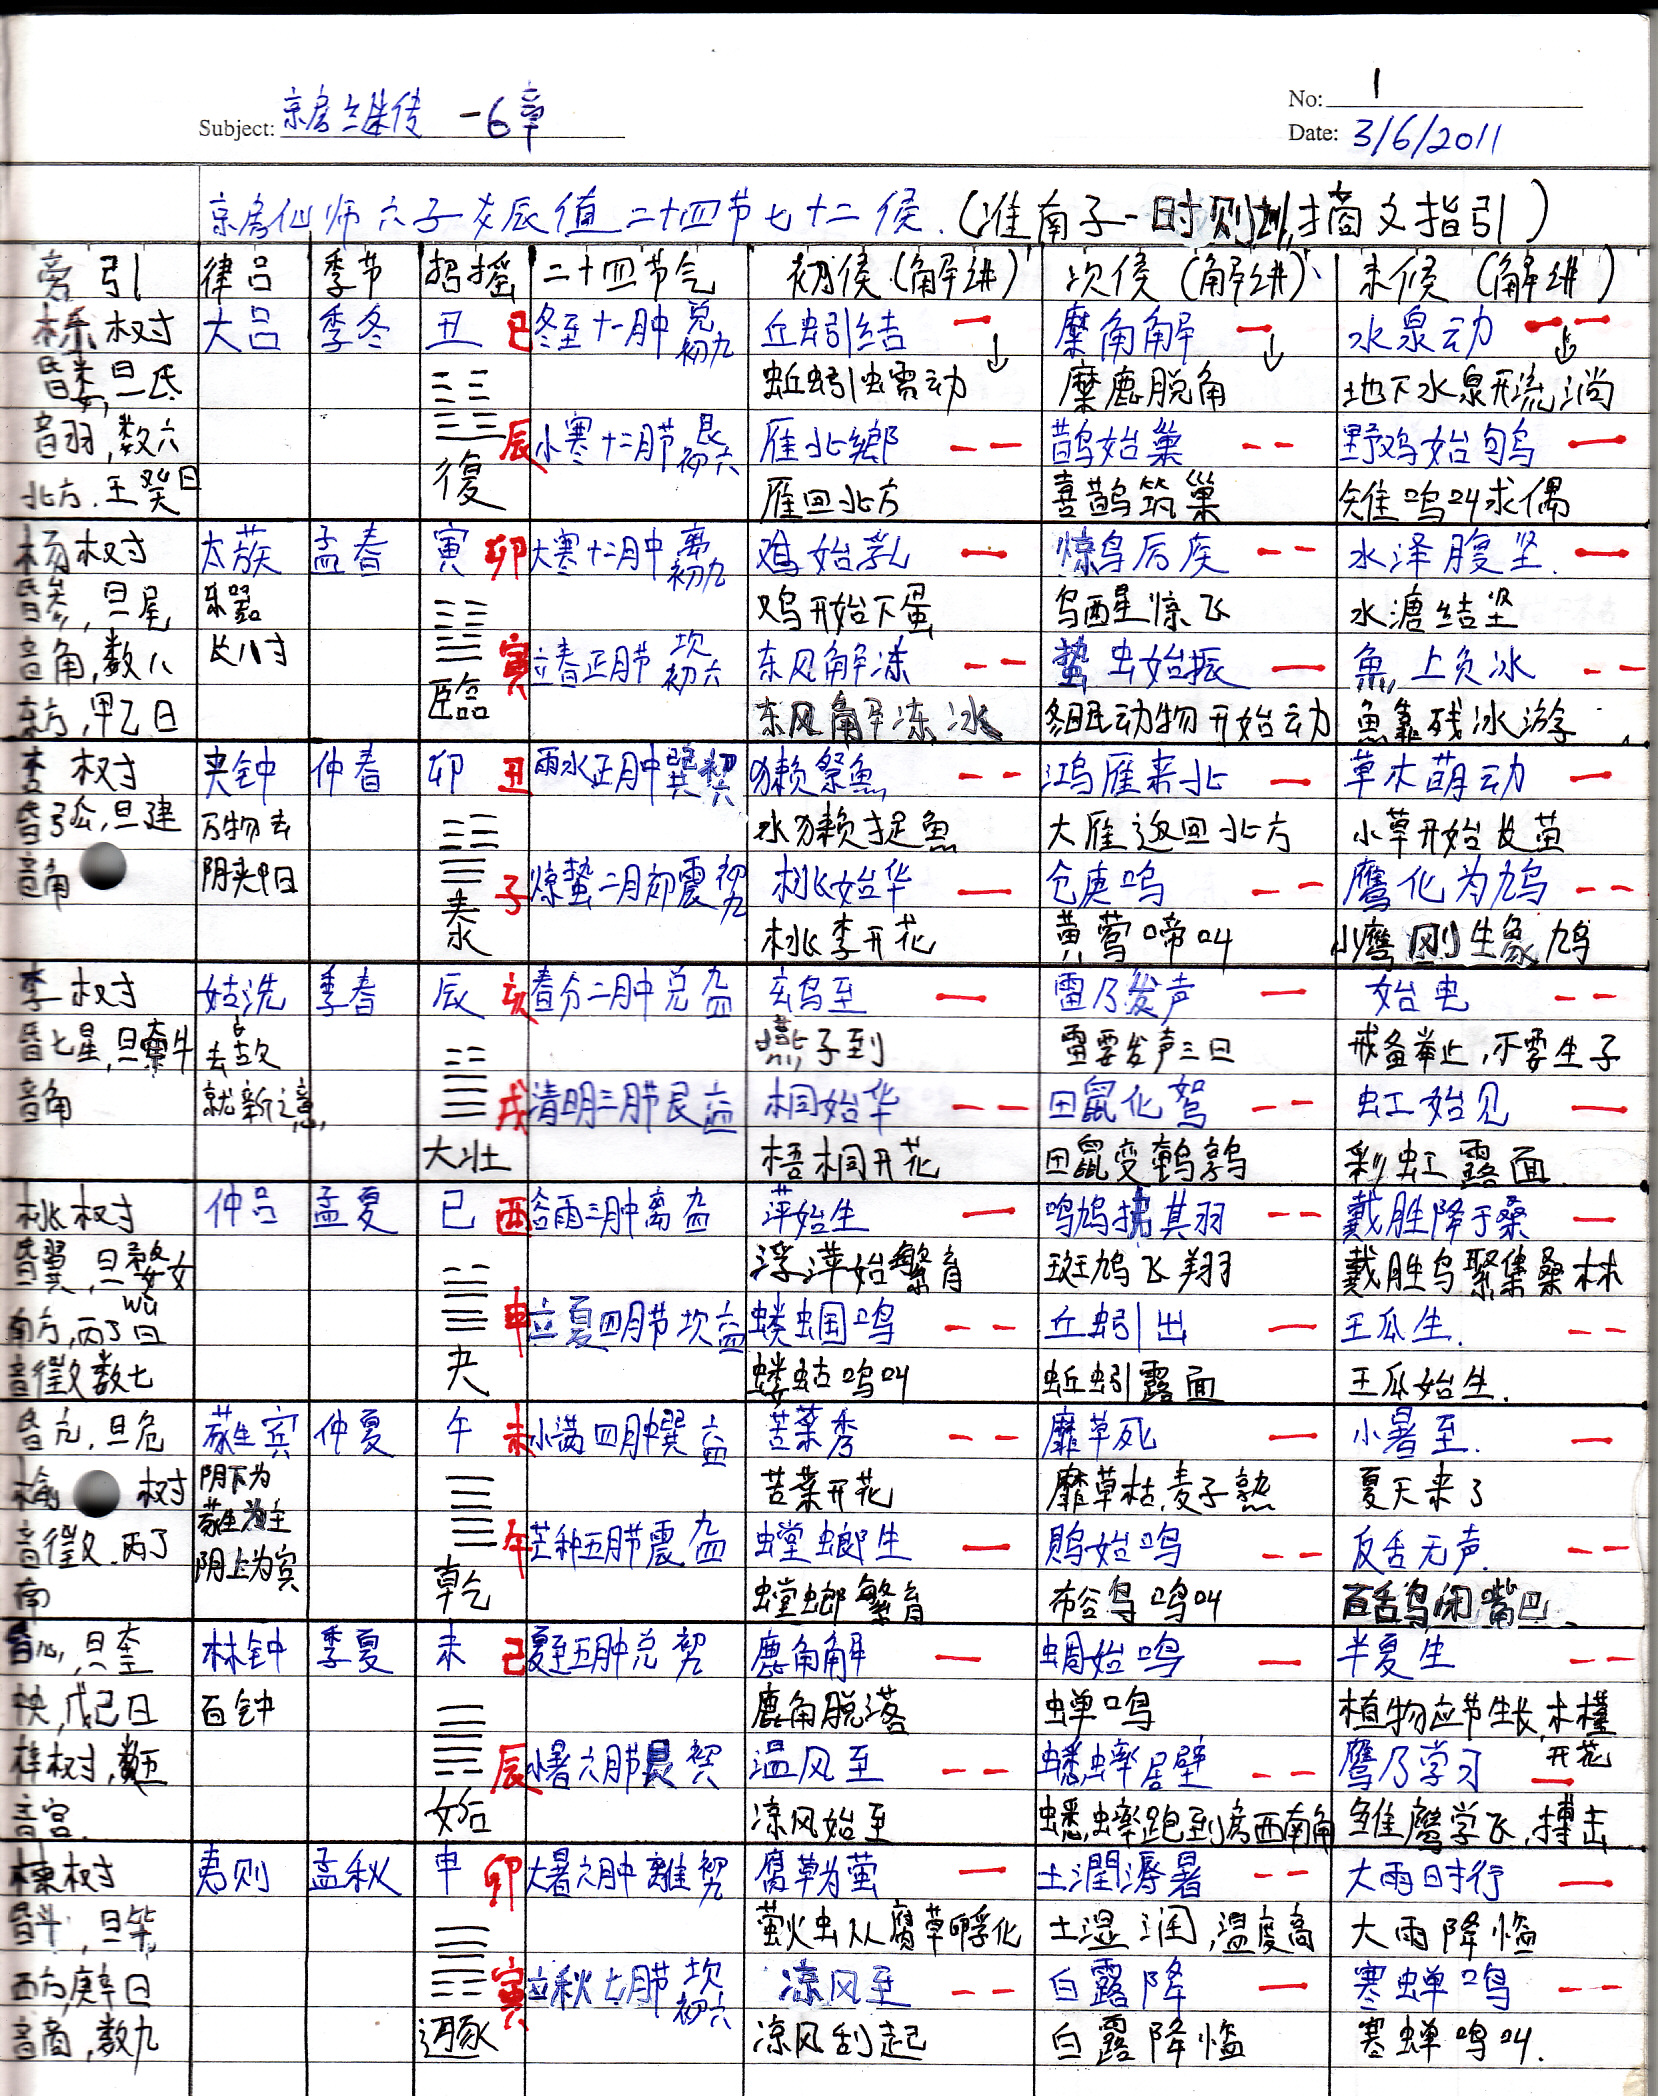 No: 1
Subject: 京房继传 -6章
Date: 3/6/2011
京房仙师六子爻辰值二十四节七十二侯.(淮南子-时则训,摘文指引)
旁引 律吕 季节 招摇 二十四节气 初侯(解讲) 次侯(解讲) 末侯(解讲)
树 大吕 季冬 丑 巳 冬至十一月中 兑初九 丘蚓结 糜角解 水泉动
昏娄,旦氐 蚯蚓虫雷动 糜鹿脱角 地下水泉开流淌
音羽,数六 辰 小寒十二月节 艮初六 雁北鄉 鹊始巢 野鸡始鸲
北方.壬癸日 復 雁回北方 喜鹊筑巢 雉鸣叫求偶
杨树 太蔟 孟春 寅 卯 大寒十二月中 离初九 鸡始乳 惊鸟厉疾 水泽腹坚.
昏参,旦尾 乐器 鸡开始下蛋 鸟醒惊飞 水溏结坚
音角,数八 长八寸 寅 立春正月节 坎初六 东风解冻 蛰虫始振 魚上负冰
东方,甲乙日 臨 东风解冻冰 冬眠动物开始动 魚靠残冰游
李树 夹钟 仲春 卯 丑 雨水正月中 巽初六 獭祭魚 鸿雁来北 草木萌动
昏弧,旦建 万物去 水獭捉魚 大雁返回北方 小草开始发苗
音角 阴夹日 子 惊蛰二月初震初九 桃始华 仓庚鸣 鹰化为鸠
泰 桃李开花 黄莺啼叫 小鹰刚生象鸠
李树 姑洗 季春 辰 亥 春分二月中兑九 玄鸟至 雷乃发声 始电
昏七星,旦牵牛 去故 燕子到 雷要发声三日 戒备举止,不要生子
音角 就新之意, 戌 清明三月节艮六 桐始华 田鼠化鴽 虹始见
大壮 梧桐开花 田鼠变鹌鹑 彩虹露面.
桃树 仲吕 孟夏 巳 酉 谷雨三月中离九 萍始生 鸣鸠拂其羽 戴胜降于桑
昏翼,旦婺女 浮萍始繁育 斑鸠飞翔 戴胜鸟聚集桑林
wù
南方,丙丁日 申 立夏四月节坎六 蝼蝈鸣 丘蚓出 王瓜生.
音徵数七 夬 蝼蛄鸣叫 蚯蚓露面 王瓜始生.
昏亢,旦危 蕤宾 仲夏 午 未 小满四月中巽六 苦菜秀 靡草死 小暑至.
榆 树 阴下为 苦菜开花 靡草枯,麦子熟 夏天来了
蕤为主
音徵.丙丁 阴上为宾 午 芒种五月节震九 螳螂生 鵙始鸣 反舌无声.
南 乾 螳螂繁育 布谷鸟鸣叫 百舌鸟闭嘴巴.
昏心,旦奎 林钟 季夏 未 巳 夏至五月中兑初九 鹿角解 蜩始鸣 半夏生
央,戊己日 百钟 鹿角脱落 蝉鸣 植物应节生长,木槿开花
梓树,数五 辰 小暑六月节艮初六 温风至 蟋蟀居壁 鹰乃学习
音宫. 姤 凉风始至 蟋蟀跑到房西南角 雏鹰学飞,搏击
楝树 夷则 孟秋 申 卯 大暑六月中離初九 腐草为萤 土潤溽暑 大雨时行
昏斗,旦毕 萤火虫从腐草孵化 土湿润,温度高 大雨降临
西方,庚辛日 寅 立秋七月节 坎初六 凉风至 白露降 寒蝉鸣
音商,数九 遯 凉风刮起 白露降临 寒蝉鸣叫.